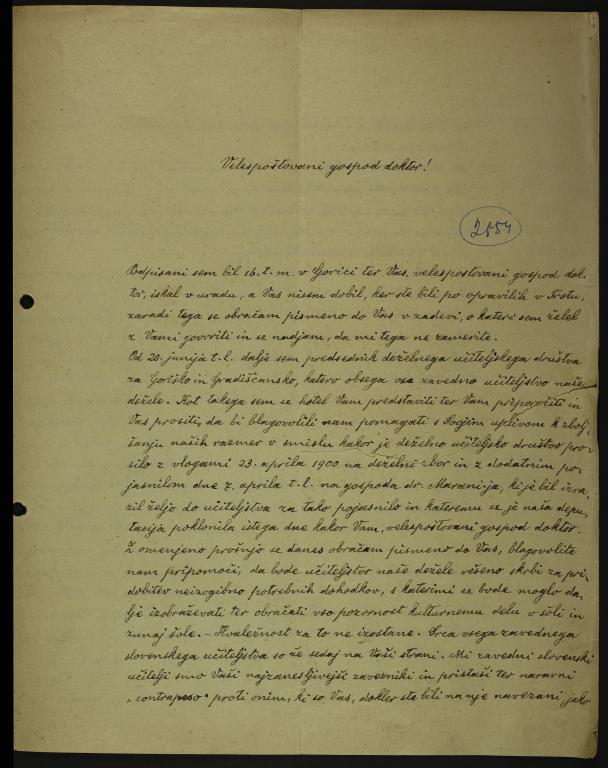 Velespoštovani gospod doktor!
2554
Podpisani sem bil 16. t. m. v Gorici ter Vas, velespoštovani gospod dok-
tor, iskal v uradu, a Vas nisem dobil, ker ste bili po opravilih v Trstu;
zaradi tega se obračam pismeno do Vas v zadevi, o kateri sem želel
z Vami govoriti in se nadjam, da mi tega ne zamerite.
Od 20. junija t. l. dalje sem predsednik deželnega učiteljskega društva
za Goriško in Gradiščansko, katero obsega vse zavedno učiteljstvo naše
dežele. Kot takega sem se hotel Vam predstaviti ter Vam priporočiti in
Vas prositi, da bi blagovolili nam pomagati s Svojim uplivom k zbolj-
šanju naših razmer v smislu kakor je deželno učiteljsko društvo pro-
silo z vlogami 23. aprila 1900 na deželni zbor in z dodatnim po-
jasnilom dne 7. aprila t. l. na gospoda dr. Marani-ja, ki je bil izra-
zil željo do učiteljstva za tako pojasnilo in kateremu se je naša depu-
tacija poklonila istega dne kakor Vam, velespoštovani gospod doktor.
Z omenjeno prošnjo se danes obračam pismeno do Vas, blagovolite
nam pripomoči, da bode učiteljstvo naše dežele rešeno skrbi za pri-
dobitev neizogibno potrebnih dohodkov, s katerimi se bode moglo da-
lje izobraževati ter obračati vso pozornost kulturnemu delu v šoli in
zunaj šole. – Hvaležnost za to ne izostane. Srca vsega zavednega
slovenskega učiteljstva so že sedaj na Vaši strani. Mi zavedni slovenski
učitelji smo Vaši najzanesljivejši zavezniki in pristaši ter naravni
"contrapeso" proti onim, ki so Vas, dokler ste bili na nje navezani, jako